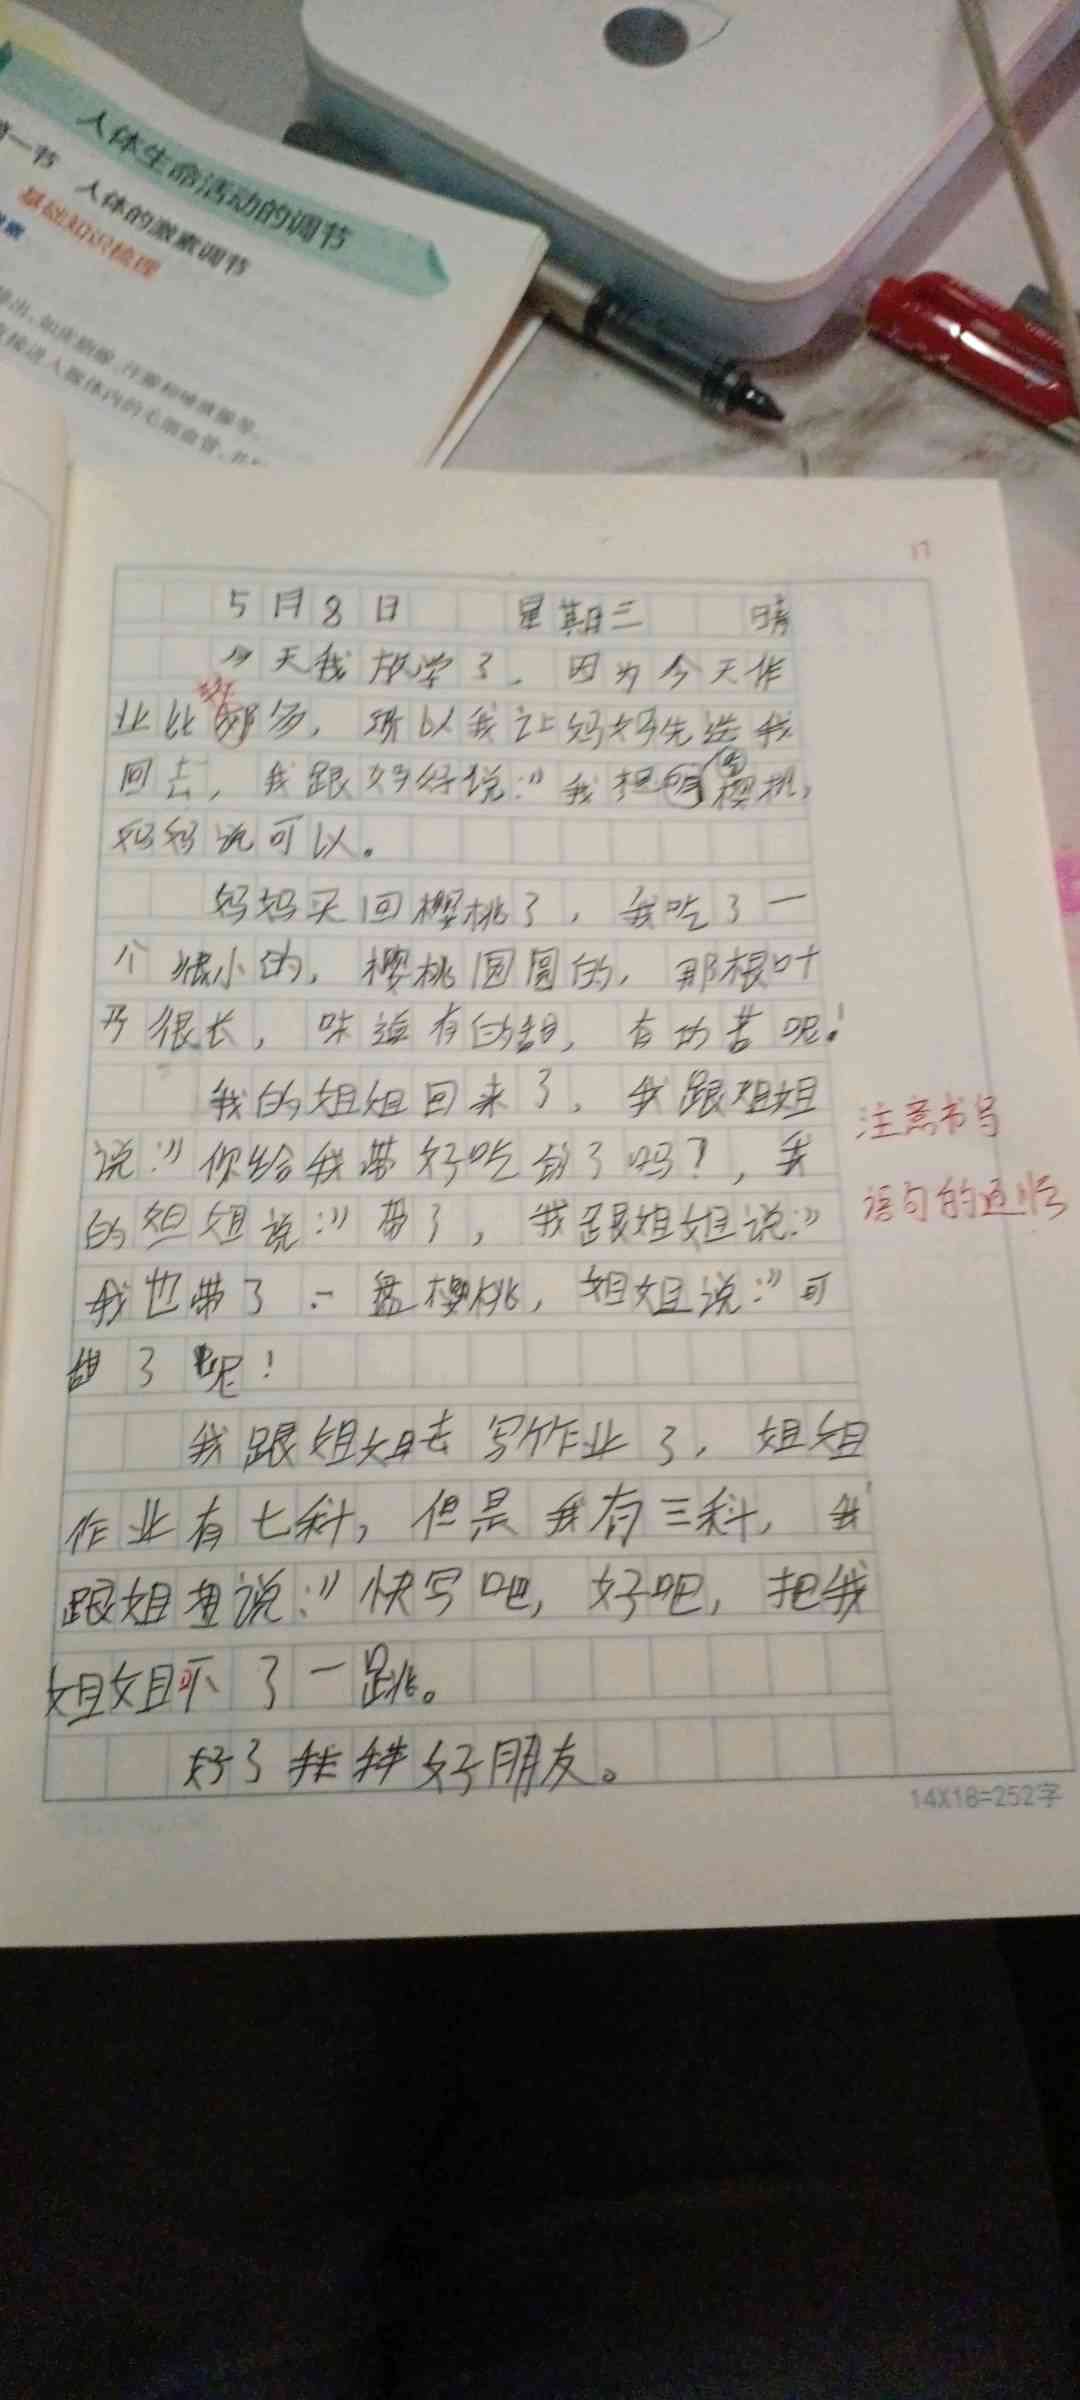 人体生命活动的调节
第一节 人体的激素调节
基础知识梳理
17
5月8日 星期三 晴
今天我放学了，因为今天作
业比较多，所以我让妈妈先送我
回去，我跟妈妈说：”我想吃樱桃，
妈妈说可以。
妈妈买回樱桃了，我吃了一
个很小的，樱桃圆圆的，那根叶
子很长，味道有的甜，有的苦呢！
我的姐姐回来了，我跟姐姐
说：”你给我带好吃的了吗？，我
的姐姐说：”带了，我跟姐姐说：”
我也带了一盘樱桃，姐姐说：”可
甜了呢！
我跟姐姐去写作业了，姐姐
作业有七科，但是我有三科，我
跟姐姐说：”快写吧，好吧，把我
姐姐吓了一跳。
好了 好朋友。
注意书写
语句的通顺
14X18=252字